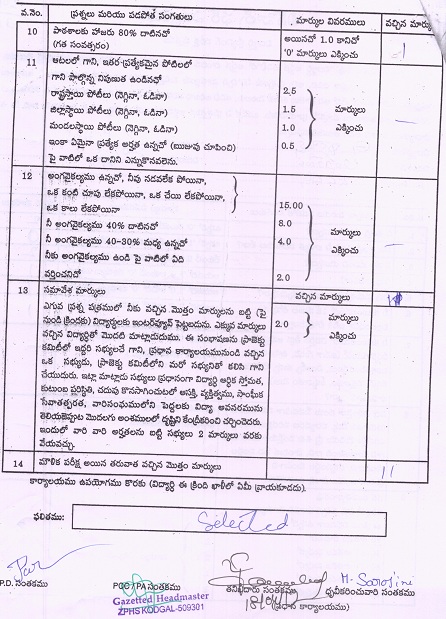 వ.నెం. ప్రశ్నలు మరియు పడపోత సంగతులు మార్కుల వివరములు వచ్చిన మార్కు
10 పాఠశాలకు హాజరు 80% దాటినచో అయినచో 1.0 కానిచో
(గత సంవత్సరం) '0' మార్కులు ఎక్కించు 1
11 ఆటలలో గాని, ఇతర ప్రత్యేకమైన పోటీలలో
గాని పాల్గొన్న నిపుణత ఉండినచో
రాష్ట్రస్థాయి పోటీలు (నెగ్గినా, ఓడినా) 2.5
జిల్లాస్థాయి పోటీలు (నెగ్గినా, ఓడినా) 1.5 మార్కులు
మండలస్థాయి పోటీలు (నెగ్గినా, ఓడినా) 1.0 ఎక్కించు
ఇంకా ఏమైనా ప్రత్యేక అర్హత ఉన్నచో (ఋజువు చూపించి) 0.5
పై వాటిలో ఒక దానిని ఎన్నుకొనవలెను.
12 అంగవైకల్యము ఉన్నచో, నీవు నడవలేక పోయినా,
ఒక కంటి చూపు లేకపోయినా, ఒక చేయి లేకపోయినా,
ఒక కాలు లేకపోయినా 15.00
నీ అంగవైకల్యము 40% దాటినచో 8.0 మార్కులు
నీ అంగవైకల్యము 40-30% మధ్య ఉన్నచో 4.0 ఎక్కించు
నీకు అంగవైకల్యము ఉండి పై వాటిలో ఏది
వర్తించనిచో 2.0
13 సమావేశ మార్కులు వచ్చిన మార్కులు
ఎగువ ప్రశ్న పత్రములో నీకు వచ్చిన మొత్తం మార్కులను బట్టి (పై
నుండి క్రిందకు) విద్యార్థులకు ఇంటర్వ్యూన్ పెట్టబడును. ఎక్కువ మార్కులు 2.0 మార్కులు
వచ్చిన విద్యార్థితో మొదట మాట్లాడుదుము. ఈ సంభాషణను ప్రాజెక్టు ఎక్కించు
కమిటీలో ఇద్దరి సభ్యులచే గాని, ప్రధాన కార్యాలయమునుండి వచ్చిన
ఒక సభ్యుడు, ప్రాజెక్టు కమిటీలోని మరో సభ్యునితో కలిసి గాని
చేయుదురు. ఇట్లా మాట్లాడు సభ్యులు ప్రధానంగా విద్యార్థి ఆర్థిక స్తోమత,
కుటుంబ పరిస్థితి, చదువు కొనసాగించుటలో ఆసక్తి, వ్యక్తిత్వము, సాంఘిక
సేవాతత్పరత, వారిసంఘములోని పెద్దలకు విద్యా అవసరమును
తెలియజెప్పుట మొదలగు అంశములలో దృష్టిని కేంద్రీకరించి చర్చించెదరు.
ఇందులో వారి వారి అర్హతలను బట్టి సభ్యులు 2 మార్కులు వరకు
వేయవచ్చు.
14 మౌఖిక పరీక్ష అయిన తరువాత వచ్చిన మొత్తం మార్కులు 11
కార్యాలయము ఉపయోగము కొరకు (విద్యార్థి ఈ క్రింది ఖాళీలో ఏమీ వ్రాయకూడదు).
ఫలితము: Selected
M. Sarojini
P.D. సంతకము PCO / PA సంతకము తనిఖీదారు సంతకము ధృవీకరించువారి సంతకము
(ప్రధాన కార్యాలయము)
Gazetted Headmaster
ZPHS KODGAL-509301